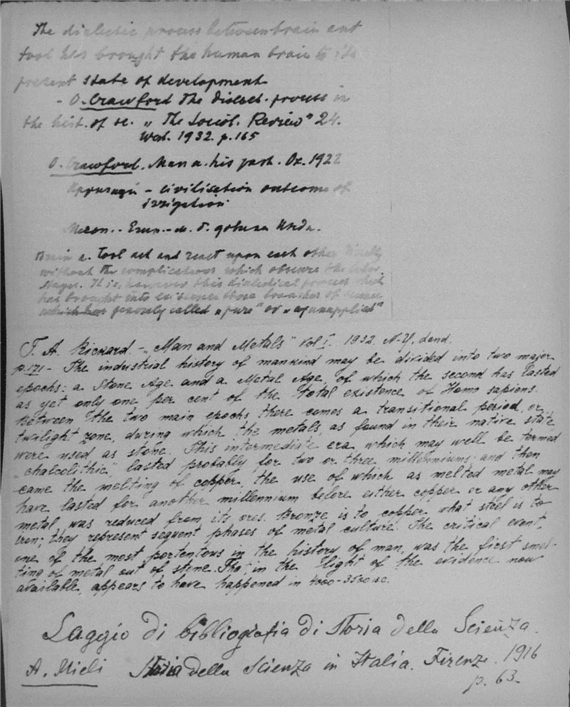 The dialectic process between brain and
tool has brought the human brain to its
present state of development
- O. Crawford The dialect. process in
the hist. of sc. „The Sociol. Review" 24.
1932. p. 165
O. Crawford. Man a. his past. Ox. 1922
civilisation outcome of
irrigation
Brain a. tool act and react upon each other directly
without the complications which obscure the later
stages. It is, however this dialectical process which
has brought into existence those branches of science
which are generally called "pure" or "unapplied"
T. A. Rickard - „Man and Metals" Vol I. 1932. N.Y., Lond.
p. 171 - The industrial history of mankind may be divided into two major
epochs: a Stone Age and a Metal Age, of which the second has lasted
as yet only one per cent of the total existence of Homo sapiens.
Between the two main epochs there comes a transitional period, or
twilight zone, during which the metals as found in their native state
were used as stone. This intermediate era, which may well be termed
„chalcolithic" lasted probably for two or three millenniums and then
came the melting of copper, the use of which as melted metal may
have lasted for another millennium before either copper or any other
metal was reduced from its ores. Bronze is to copper what steel is to
iron; they represent sequent phases of metal culture. The critical event,
one of the most portentous in the history of man, was the first smel-
ting of metal out of stone. This in the light of the evidence now
available, appears to have happened in 4000-3500 BC.
Saggio di bibliografia di Storia della Scienza.
A. Mieli Storia della Scienza in Italia. Firenze. 1916
p. 63.